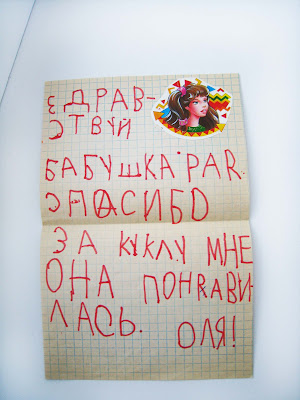 ЗДРАВ-
СТВУЙ
БАБУШКА РАЯ.
СПАСИБО
ЗА КУКЛУ МНЕ
ОНА ПОНЯВИ-
ЛАСЬ.
ОЛЯ!